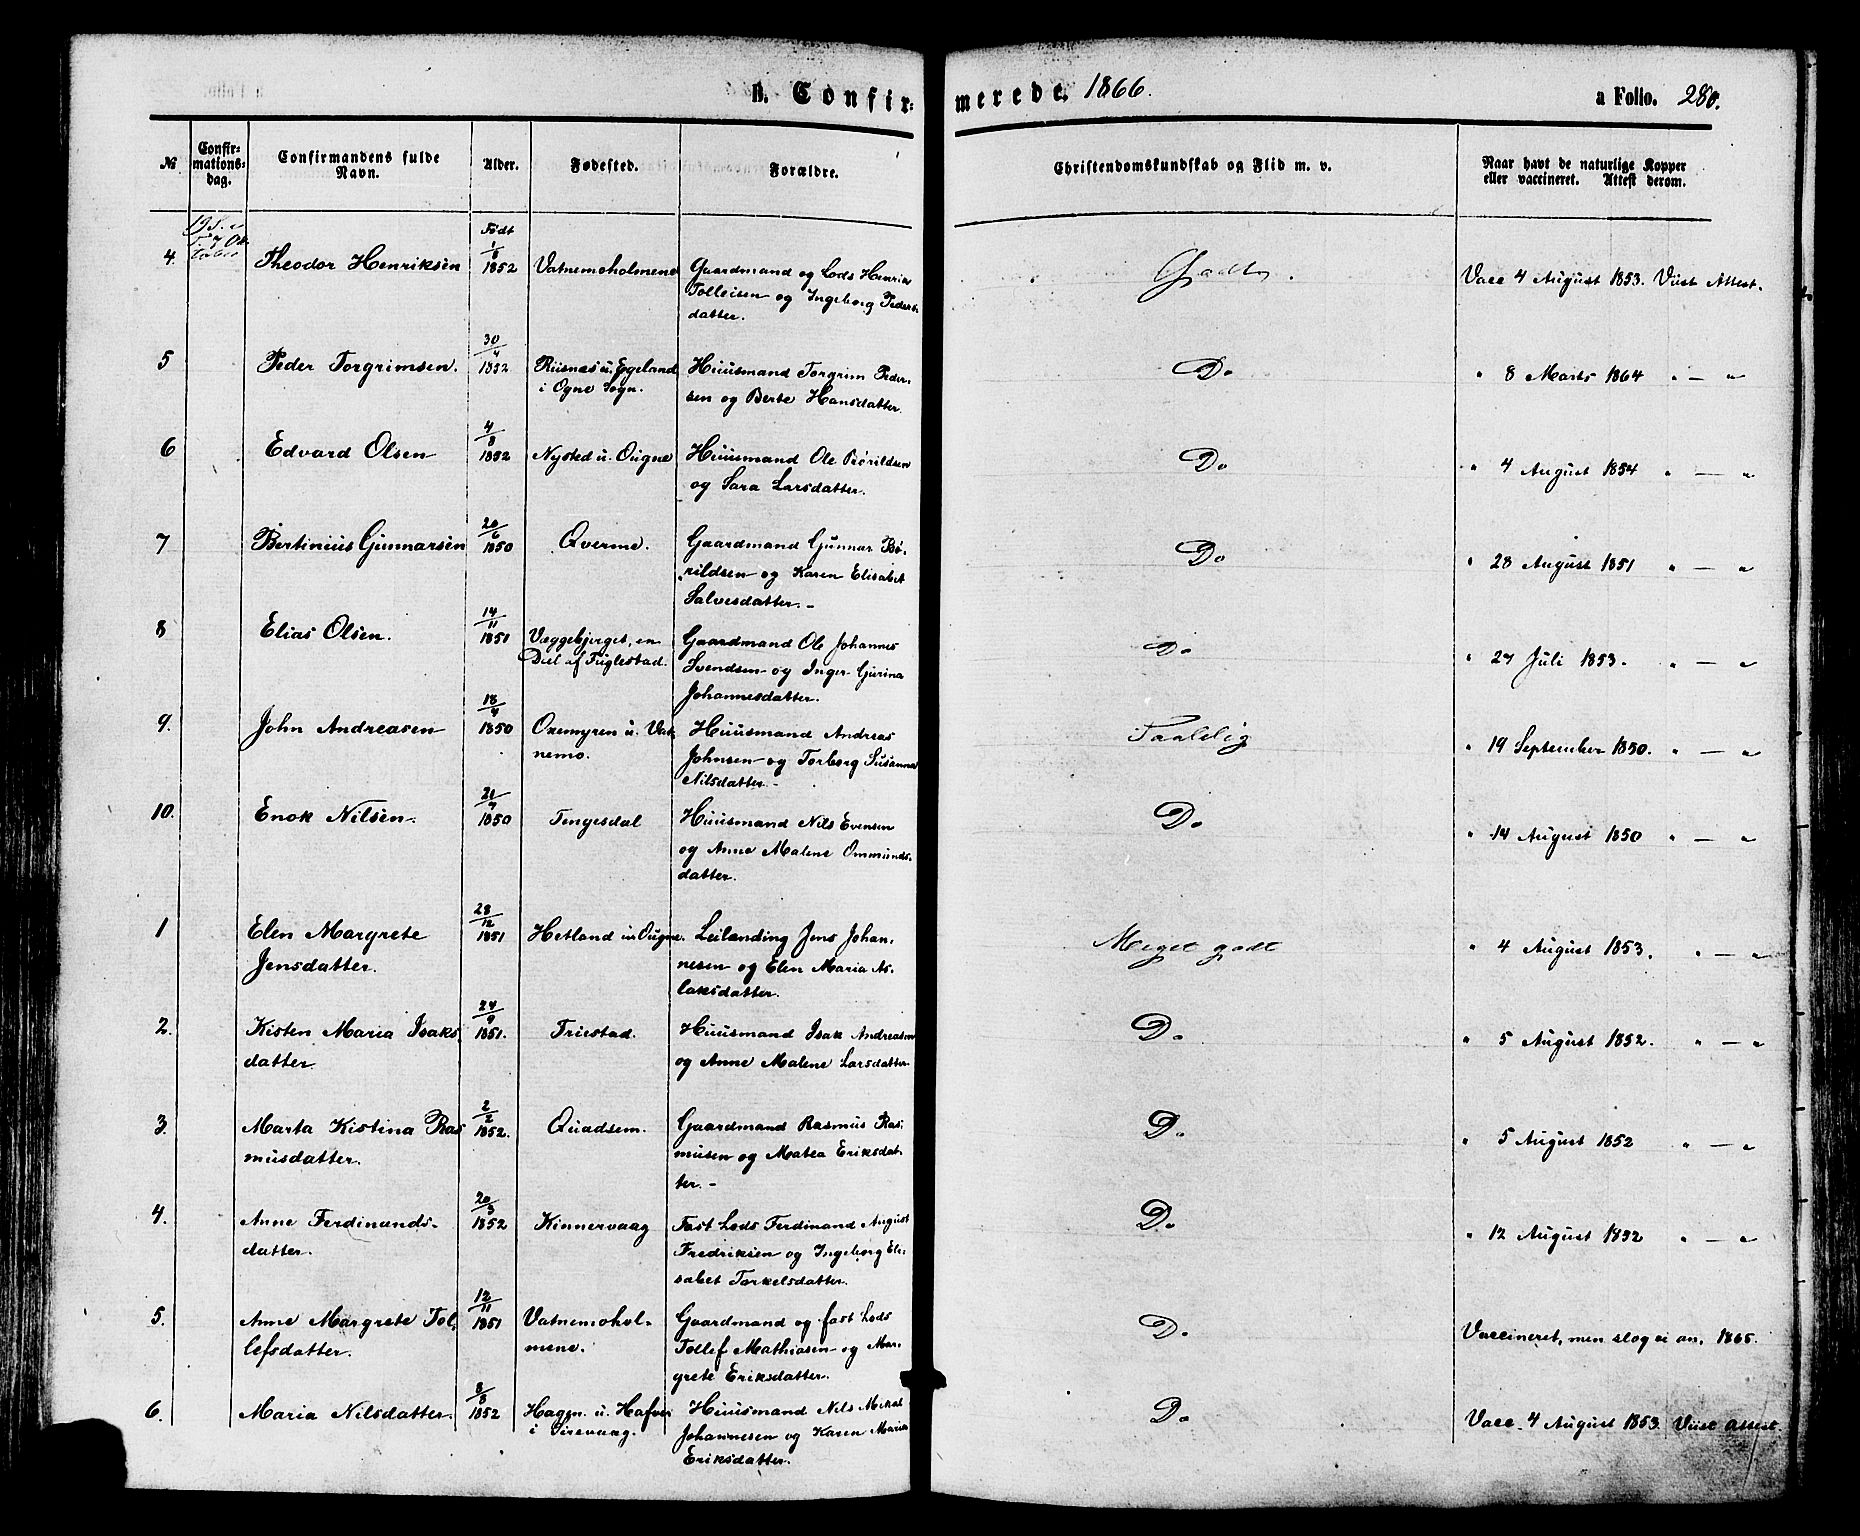 B. Confir-
merede. 1866.
a Folio. 280.
№
Confir-
mations-
dag.
Confirmandens fulde
Navn.
Alder.
Fødested.
Forældre.
Christendomskundskab og Flid m. v.
Naar havt de naturlige Kopper
eller vaccineret. Attest derom.
4.
Theodor Henriksen
Født
1/8
1852
Vatnemoholmene
Gaardmand og Lods Henrik
Tolleisen og Ingeborg Peders-
datter.
Godt.
Vacc 4 August 1853. Viist Attest.
5
Peder Torgrimsen.
30/4
1852
Riisnæs u. Egeland
i Ogne Sogn.
Huusmand Torgrim Peder-
sen og Berte Hansdatter.
Do
" 8 Marts 1864 " — "
6
Edvard Olsen
4/8
1852
Nysted u. Ougne
Huusmand Ole Børildsen
og Sara Larsdatter.
Do
" 4 August 1854 " — "
7
Bertinius Gunnarsen
20/6
1850
Qverme.
Gaardmand Gunnar Bø-
rildsen og Karen Elisabet
Salvesdatter. -
Do
" 28 August 1851 " — "
8
Elias Olsen.
14/11
1851
Væggebjerget, en
Deel af Fuglestad.
Gaardmand Ole Johannes
Svendsen og Inger Gurina
Johannesdatter.
Do
" 27 Juli 1853. " — "
9.
John Andreasen
18/4
1850
Oxemyren u. Vat-
nemo.
Huusmand Andreas
Johnsen og Torborg Susanna
Nilsdatter. -
Taalelig
" 19 September 1850. " — "
10.
Enok Nilsen.
21/4
1850
Tengesdal
Huusmand Nils Evensen
og Anne Malene Ommunds-
datter.
Do
" 14 August 1850 " — "
1
Elen Margrete
Jensdatter.
28/12
1851
Hetland u. Ougne.
Leilænding Jens Johan-
nesen og Elen Maria As-
laksdatter.
Meget godt
" 4 August 1853. " — "
2.
Kisten Maria Isaks-
datter
24/9
1851.
Triestad.
Huusmand Isak Andreasen
og Anne Malene Larsdatter
Do
" 5 August 1852. " — "
3.
Marta Kistina Ras-
musdatter.
2/2
1852.
Quadsem.
Gaardmand Rasmus Ras-
musen og Matea Eriksdat-
ter. -
Do
" 5 August 1852 " — "
4.
Anne Ferdinands-
datter.
20/3
1852
Kinnervaag
Fast Lods Ferdinand August
Fredriksen og Ingeborg Eli-
sabet Torkelsdatter.
Do
" 12 August 1852 " — "
5.
Anne Margrete Tol-
lefsdatter.
12/11
1851
Vatnemohol-
mene.
Gaardmand og fast Lods
Tollef Mathiasen og Mar-
grete Eriksdatter.
Do
Vaccineret, men slog ei an. 1865.
6.
Maria Nilsdatter.
8/3
1852
Hagen u. Hafver
i Sirevaag.
Huusmand Nils Mikal
Johannesen og Karen Maria
Eriksdatter.
Do
Vacc. 4 August 1853. Viist attest.